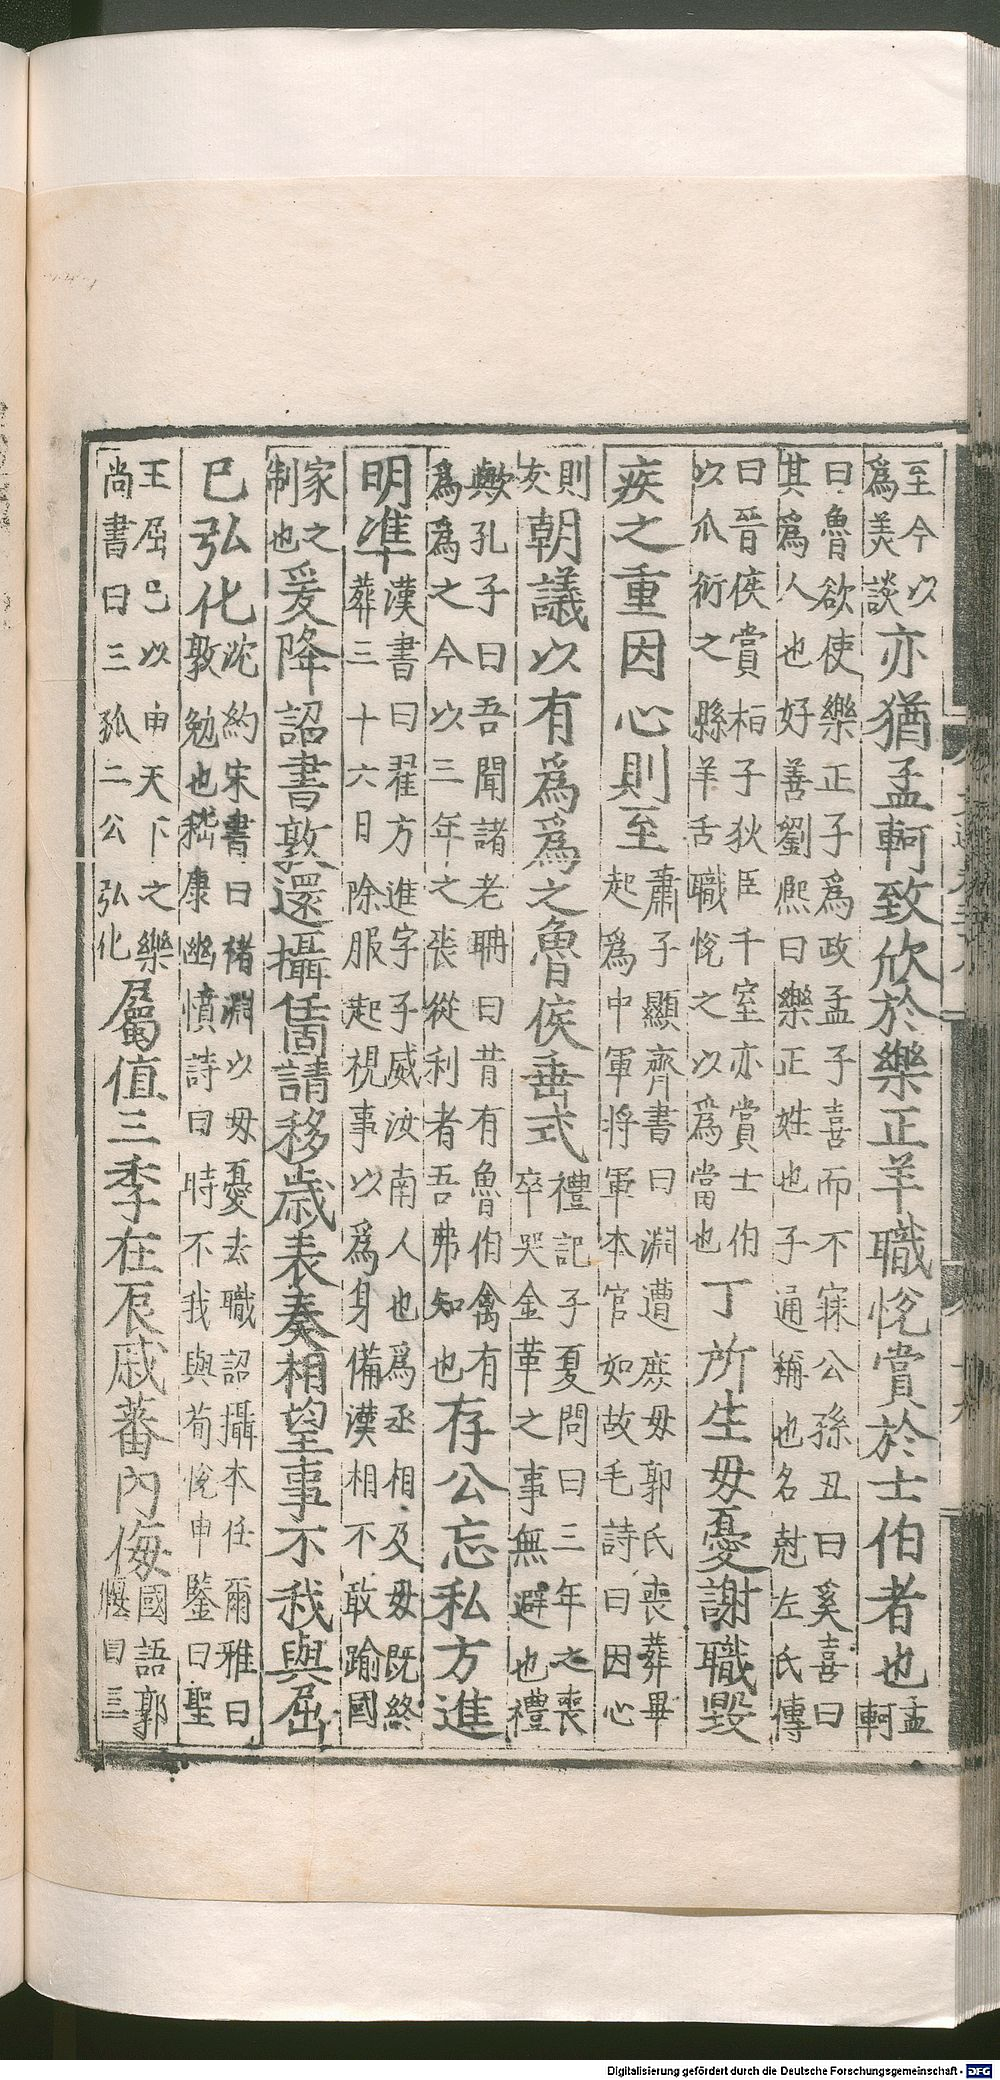 至今以
爲美談亦猶孟軻致欣於樂正羊職悅賞於士伯者也孟
軻
曰魯欲使樂正子爲政孟子喜而不寐公孫丑曰奚喜曰
其爲人也好善劉熈曰樂正姓也子通稱也名尅左氏傳
曰晉侯賞桓子狄臣千室亦賞士伯
以爪衍之縣羊舌職悅之以爲當也丁所生毋憂謝職毀
疾之重因心則至蕭子顯齊書曰淵遭庶毋郭氏喪葬畢
起爲中軍將軍本官如故毛詩曰因心
則
友朝議以有爲爲之魯侯垂式禮記子夏問曰三年之喪
卒哭金革之事無避也禮
歟孔子曰吾聞諸老聃曰昔有魯伯禽有
爲爲之今以三年之喪從利者吾弗知也存公忘私方進
明準漢書曰翟方進字子威汝南人也爲丞相及毋既終
葬三十六日除服起視事以爲身備漢相不敢踰國
家之
制也爰降詔書敦還攝任固請移歲表奏相望事不我與屈
巳弘化沈約宋書曰褚淵以毋憂去職詔攝本任爾雅曰
敦勉也嵇康幽憤詩曰時不我與荀悅申鑒曰聖
王屈己以申天下之樂
尚書曰三孤二公弘化屬值三季在辰戚蕃內侮國語郭
偃曰三
Digitalisierung gefördert durch die Deutsche Forschungsgemeinschaft - DFG